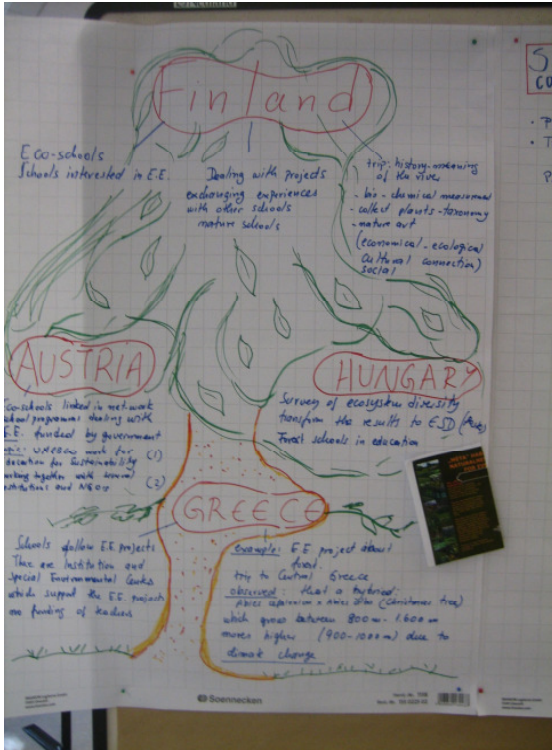 Finland
Eco-schools
Schools interested in E.E.
Dealing with projects
exchanging experiences
with other schools
nature schools
trip-history-meaning
of the river
- bio-chemical
- collect plants-taxonomy
- nature art
(economical-ecological
cultural connection)
social
AUSTRIA
Eco-schools linked in network
school programme dealing with
E.E. funded by government
work for (1)
education for Sustainability
working together with several (2)
institutions and NGOs
HUNGARY
Survey of ecosystem diversity
transform the results to ESD
Forest schools in education
GREECE
Schools follow E.E. projects
Institution and
special Environmental
which support the E.E. projects
funding of teachers
example: E.E. project about
forest.
trip to Central Greece
observed: that a
Abies Abies (Christmas tree)
which grows between 800m - 1.600m
moves higher (900-1000m) due to
climate change
Soennecken
S
CU
• P
• T
P